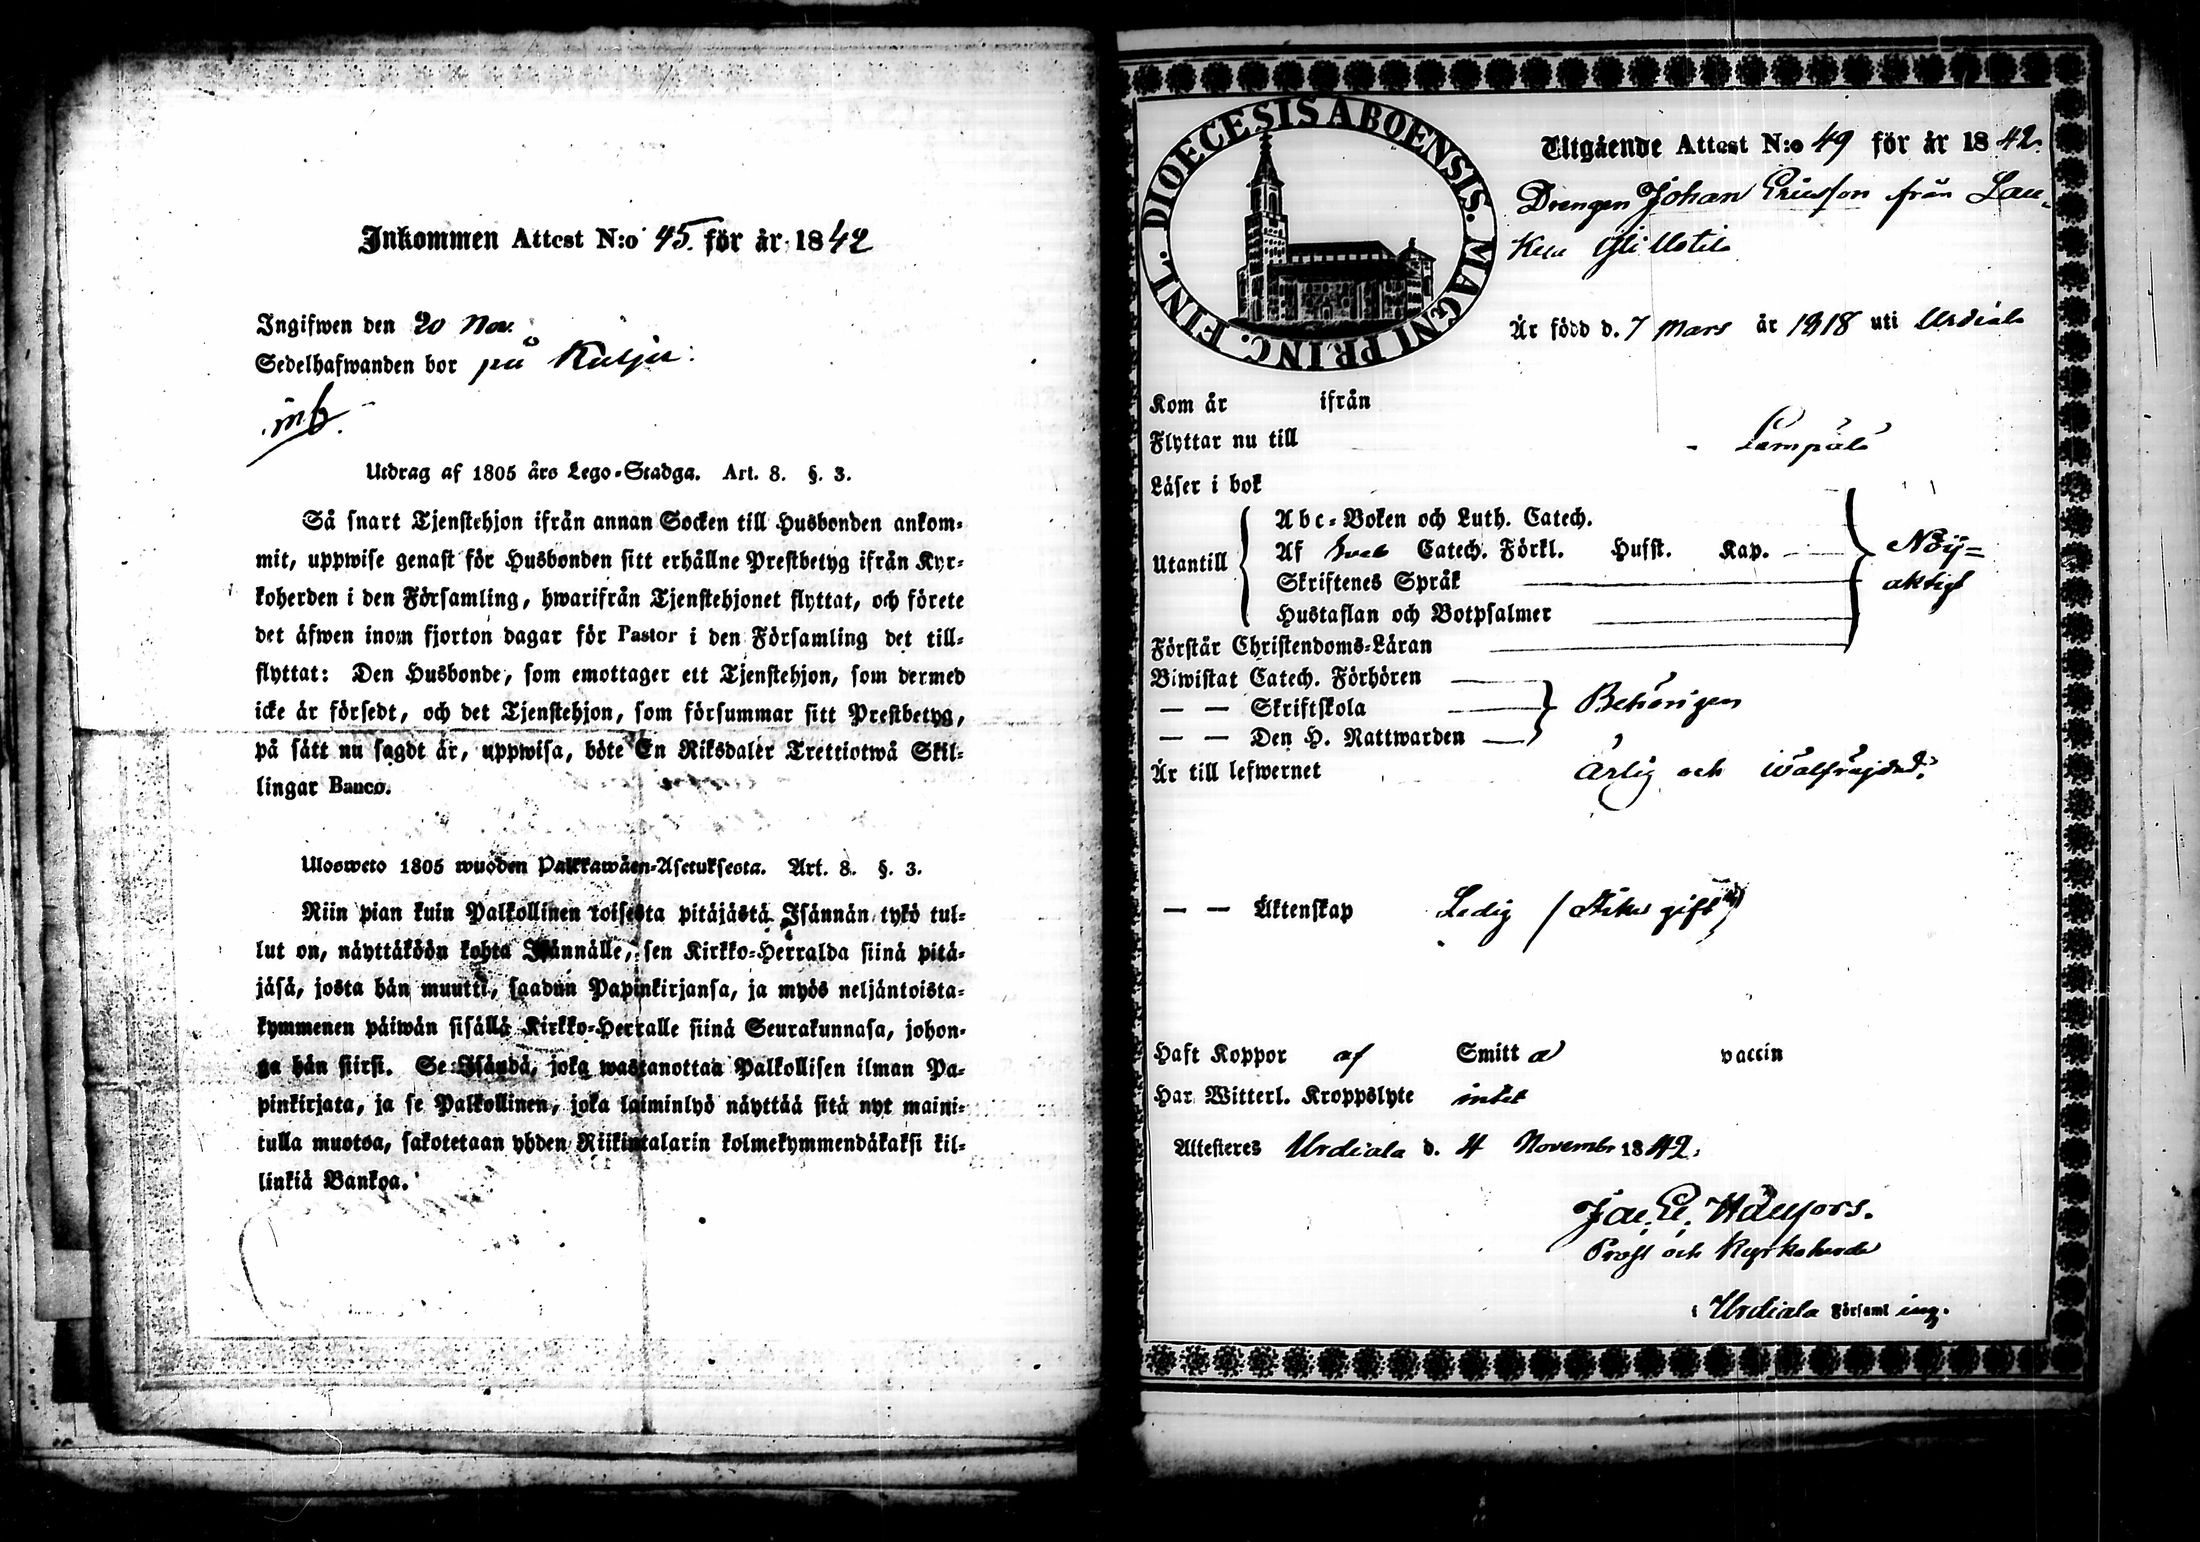 Inkommen Attest N:o 45. för år 1842
Ingifwen den 20 Nov.
Sedelhafwanden bor på Kulju.
inb.
Utdrag af 1805 års Lego-Stadga. Art. 8. §. 3.
Så snart Tjenstehjon ifrån annan Socken till Husbonden ankom-
mit, uppwise genast för Husbonden sitt erhållne Prestbetyg ifrån Kyr-
koherden i den Församling, hwarifrån Tjenstehjonet flyttat, och förete
det äfwen inom fjorton dagar för Pastor i den Församling det till-
flyttat: Den Husbonde, som emottager ett Tjenstehjon, som dermed
icke är försedt, och det Tjenstehjon, som försummar sitt Prestbetyg,
på sätt nu sagdt är, uppwisa, böte En Riksdaler Trettiotwå Skil-
lingar Banco.
Ulosweto 1805 wuoden Palkkawäen-Asetuksesta. Art. 8. §. 3.
Niin pian kuin Palkollinen toisesta pitäjästä Isännän tykö tul-
lut on, näyttäköön kohta Isännälle, sen Kirkko-Herralda siinä pitä-
jäsä, josta hän muutti, saadun Papinkirjansa, ja myös neljäntoista-
kymmenen päiwän sisällä Kirkko-Herralle siinä Seurakunnasa, johon-
ga hän siirsi. Se Isändä, joka wastanottaa Palkollisen ilman Pa-
pinkirjata, ja se Palkollinen, joka laiminlyö näyttää sitä nyt maini-
tulla muotoa, sakotetaan yhden Riikintalarin kolmekymmendäkaksi kil-
linkiä Bankoa.
DIOECESIS ABOENSIS. MAGNI PRINC. FINL.
Utgående Attest N:o 49 för år 1842.
Drengen Johan Ericsson från Lau-
Är född d. 7 Mars år 1818 uti Urdiala
Kom år ifrån
Flyttar nu till Lempälä
Läser i bok
Abc-Boken och Luth. Catech.
Utantill Af Sveb Catech. Förkl. Husst. Kap. Nöij-
Skriftenes Språk aktigt
Hustaflan och Botpsalmer
Förstår Christendoms-Läran
Biwistat Catech. Förhören
— — Skriftskola Behörigen
— — Den H. Nattwarden
Är till lefwernet Ärlig och wälfräjdad.
— — Äktenskap Ledig
Haft Koppor af Smitta vaccin
Har Witterl. Kroppslyte intet
Attesteres Urdiala d. 4 November 1842.
Prost och Kyrkoherde
i Urdiala Församling.